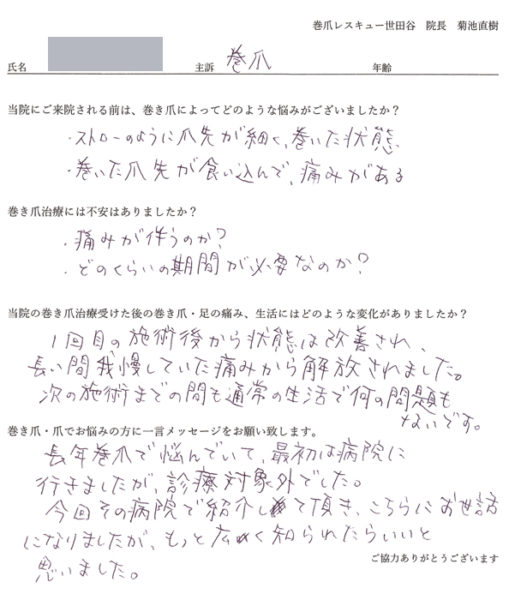 巻爪レスキュー世田谷 院長 菊池直樹
氏名 主訴 巻爪 年齢
当院にご来院される前は、巻き爪によってどのような悩みがございましたか？
・ストローのように爪先が細く、巻いた状態
・巻いた爪先が食い込んで、痛みがある
巻き爪治療には不安はありましたか？
・痛みが伴うのか？
・どのくらいの期間が必要なのか？
当院の巻き爪治療受けた後の巻き爪・足の痛み、生活にはどのような変化がありましたか？
1回目の施術後から状態は改善され、
長い間我慢していた痛みから解放されました。
次の施術までの間も通常の生活で何の問題も
ないです。
巻き爪・爪でお悩みの方に一言メッセージをお願い致します。
長年巻爪で悩んでいて、最初は病院に
行きましたが、診療対象外でした。
今回その病院で紹介して頂き、こちらにお世話
になりましたが、もっと広く知られたらいいと
思いました。
ご協力ありがとうございます